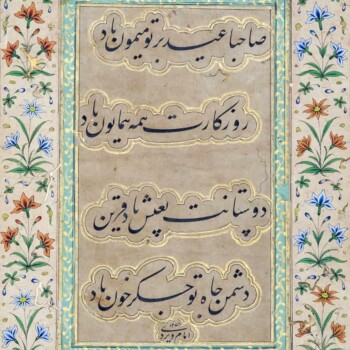 صاحبا عید بر تو میمون باد
روزگارت همه همایون باد
دوستانت بعیش باد قرین
دشمن جاه تو جگر خون باد
امام ویردی